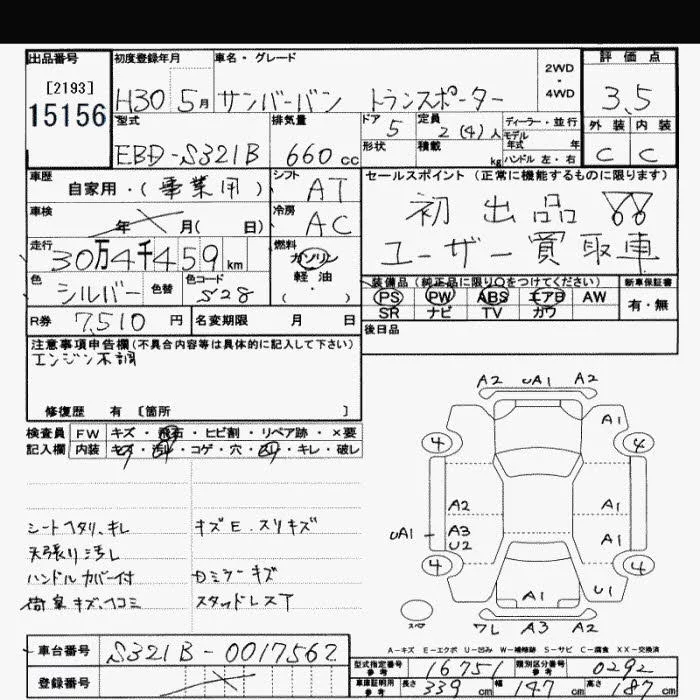 出品番号
[2193]
15156
初度登録年月
H30 5月
車名・グレード
サンバーバン トランスポーター
2WD
・
4WD
評価点
3.5
外装 内装
C C
型式
EBD-S321B
排気量
660 cc
ドア 5
形状
定員
2(4)人
積載
kg
ディーラー・並行
モデル
年式 年
ハンドル 左・右
車歴
自家用・(事業用)
シフト
AT
車検
年 月( 日)
冷房
AC
走行
30万4千459km
燃料
ガソリン
軽・油
( ・ )
色
シルバー
色替
色コード
S28
R券 7,510円
名変期限 月 日
セールスポイント(正常に機能するものに限ります)
初出品
ユーザー買取車
装備品(純正品に限り○をつけてください)
PS PW ABS エアB AW
SR ナビ TV カワ
新車保証書
有・無
後日品
注意事項申告欄(不具合内容等は具体的に記入して下さい)
エンジン不調
修復歴 有 [箇所 ]
検査員 FW キズ・飛石・ヒビ割・リペア跡・×要
記入欄 内装 キズ・汚れ・コゲ・穴・凹・キレ・破レ
シートヘタリ、キレ
天張り汚レ
ハンドルカバー付
荷室キズ、ヘコミ
キズE.スリキズ
Dミラーキズ
スタッドレスT
A2 UA1 A2
A1
4 4
A2 A1
UA1 A3 A1
U2
4 4
A1 U1
スペア
ワレ A3 A2
A-キズ E-エクボ U-凹み W-補修跡 S-サビ C-腐食 XX-交換済
車台番号 S321B-0017562
登録番号
型式指定番号
参考
16751
類別区分番号
参考
0292
車庫証明用
参考
長さ 339cm 幅 147cm 高さ 187cm